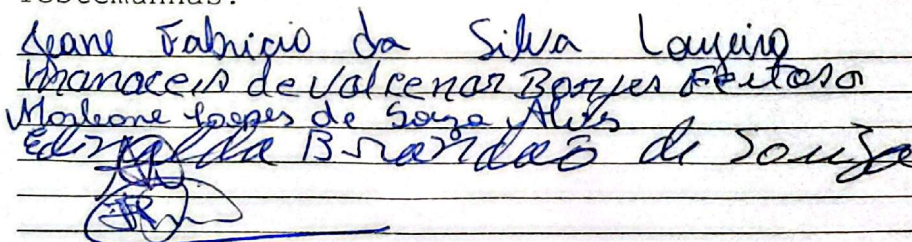 Testemunhas:
Jeane Fabricio da Silva Loureiro
de Valcenar Borges Feitosa
Marleone Lopes de Souza Alves
Edinalda Brandão de Souza